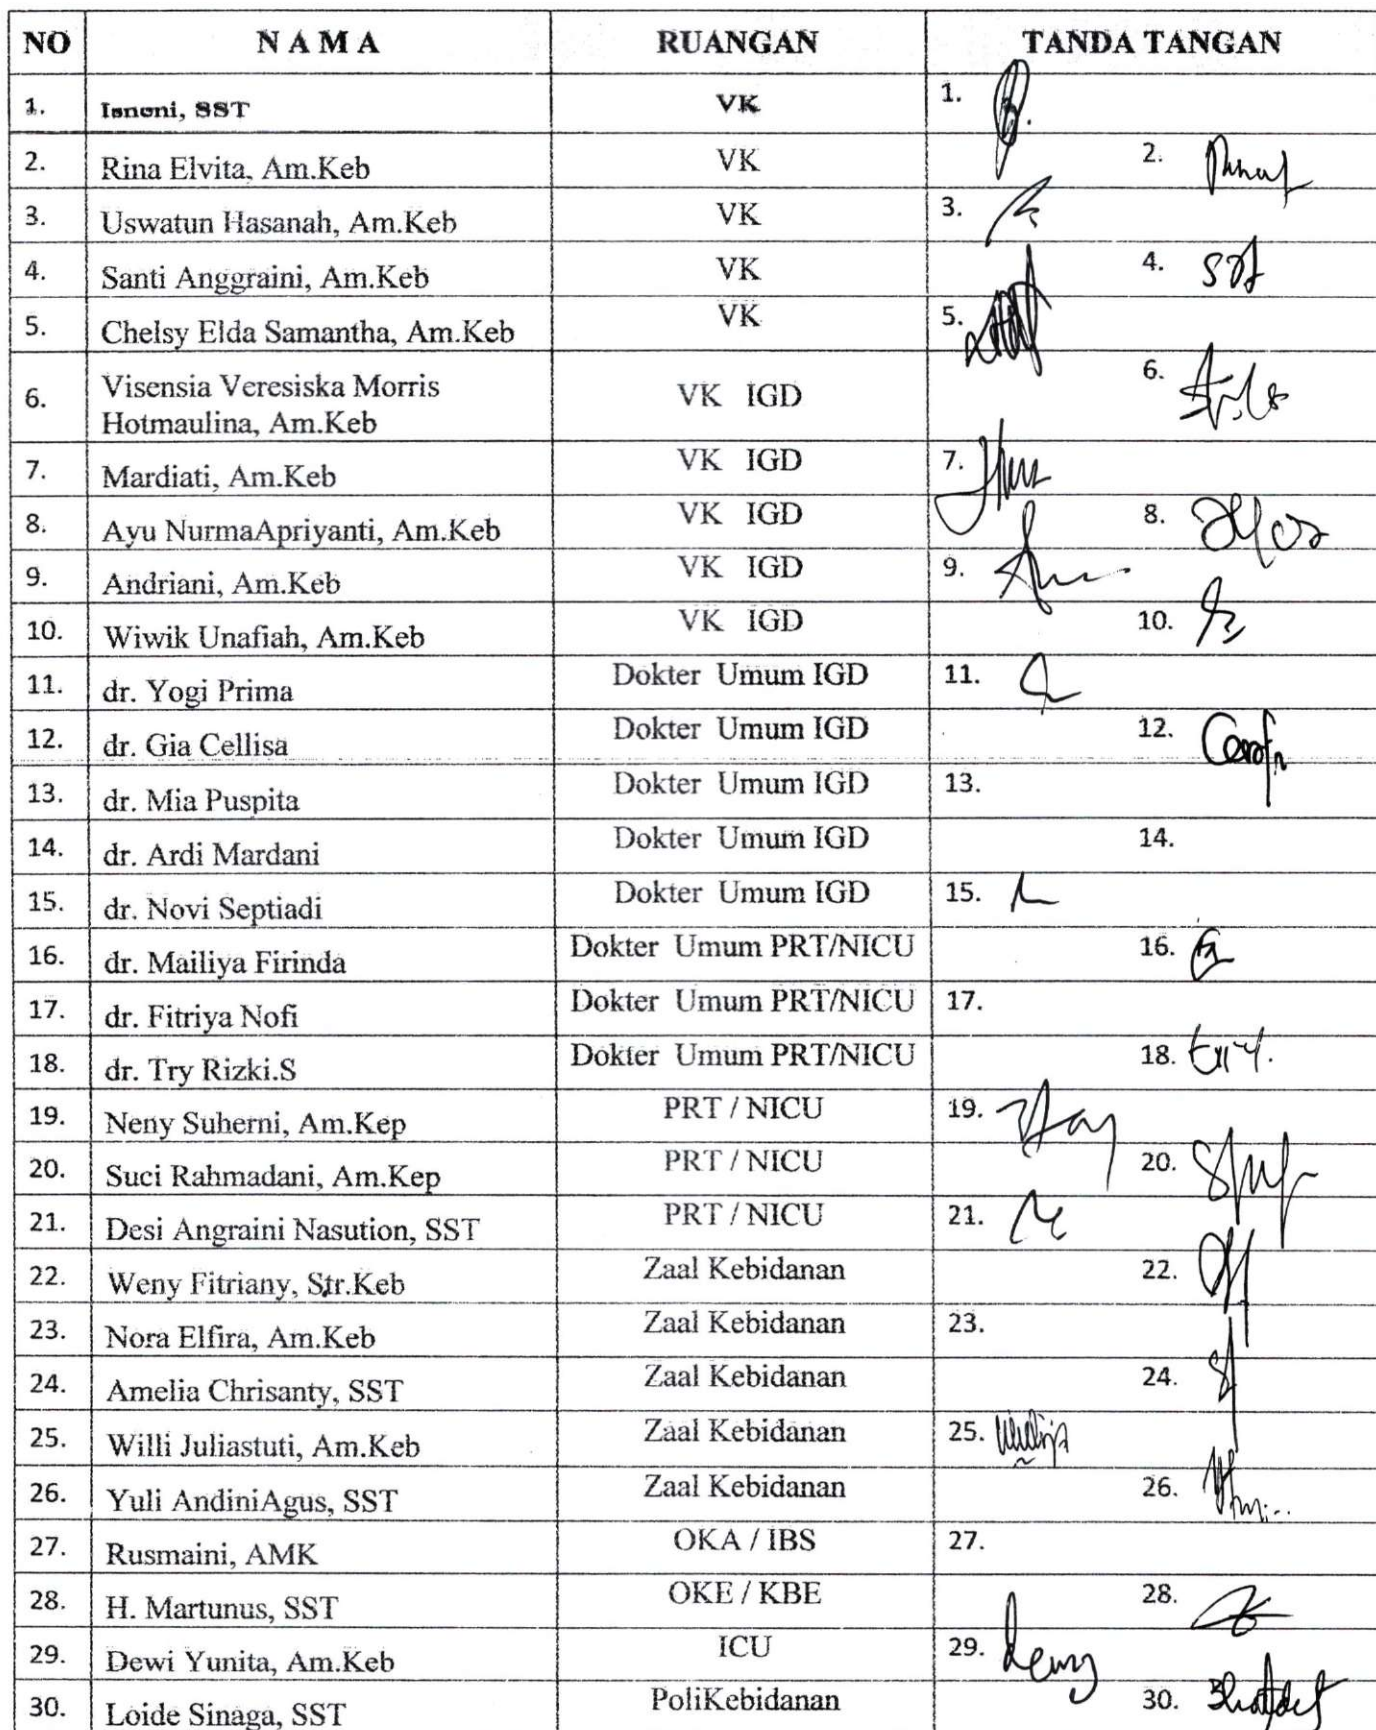 NO N A M A RUANGAN TANDA TANGAN
1. Isnoni, SST VK 1.
2. Rina Elvita, Am.Keb VK 2.
3. Uswatun Hasanah, Am.Keb VK 3.
4. Santi Anggraini, Am.Keb VK 4.
5. Chelsy Elda Samantha, Am.Keb VK 5.
6. Visensia Veresiska Morris
Hotmaulina, Am.Keb VK IGD 6.
7. Mardiati, Am.Keb VK IGD 7.
8. Ayu NurmaApriyanti, Am.Keb VK IGD 8.
9. Andriani, Am.Keb VK IGD 9.
10. Wiwik Unafiah, Am.Keb VK IGD 10.
11. dr. Yogi Prima Dokter Umum IGD 11.
12. dr. Gia Cellisa Dokter Umum IGD 12.
13. dr. Mia Puspita Dokter Umum IGD 13.
14. dr. Ardi Mardani Dokter Umum IGD 14.
15. dr. Novi Septiadi Dokter Umum IGD 15.
16. dr. Mailiya Firinda Dokter Umum PRT/NICU 16.
17. dr. Fitriya Nofi Dokter Umum PRT/NICU 17.
18. dr. Try Rizki.S Dokter Umum PRT/NICU 18.
19. Neny Suherni, Am.Kep PRT / NICU 19.
20. Suci Rahmadani, Am.Kep PRT / NICU 20.
21. Desi Angraini Nasution, SST PRT / NICU 21.
22. Weny Fitriany, Str.Keb Zaal Kebidanan 22.
23. Nora Elfira, Am.Keb Zaal Kebidanan 23.
24. Amelia Chrisanty, SST Zaal Kebidanan 24.
25. Willi Juliastuti, Am.Keb Zaal Kebidanan 25.
26. Yuli AndiniAgus, SST Zaal Kebidanan 26.
27. Rusmaini, AMK OKA / IBS 27.
28. H. Martunus, SST OKE / KBE 28.
29. Dewi Yunita, Am.Keb ICU 29.
30. Loide Sinaga, SST PoliKebidanan 30.